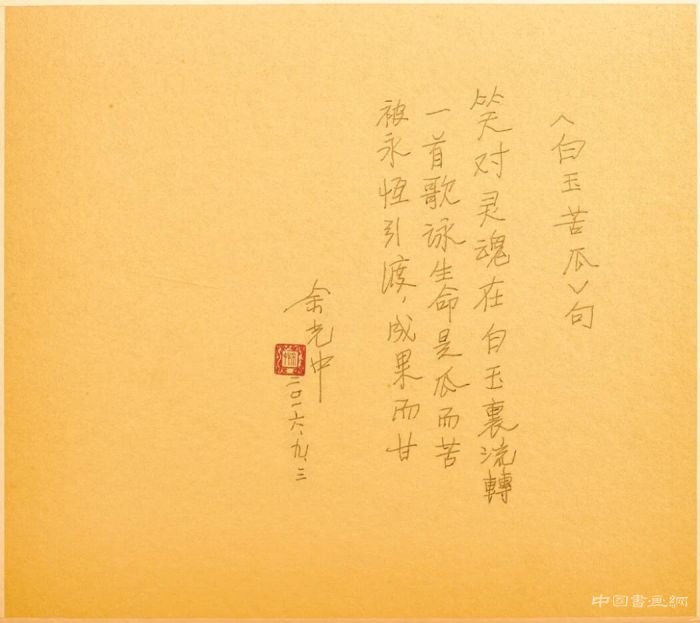 〈白玉苦瓜〉句
笑对灵魂在白玉裏流轉
一首歌詠生命是瓜而苦
被永恆引渡，成果而甘
余光中
二〇一六、九、三
中国書画網